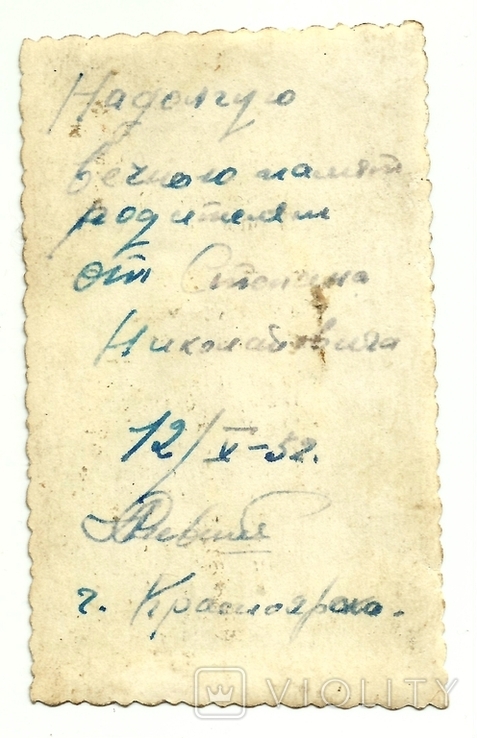 Надолгую
вечную память
родителям
от Степана
Николаевича
12/X-52.
г. Красноярск.
VIOLITY